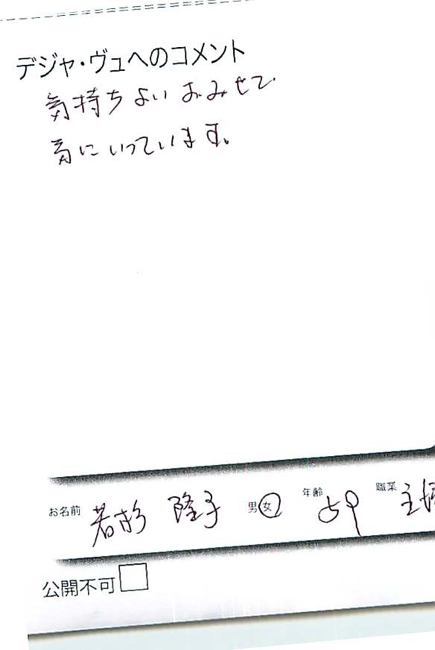 デジャ・ヴュへのコメント
気持ちよいおみせで
気にいっています。
お名前 若杉 隆子 男 女 年齢 59 職業 主婦
公開不可